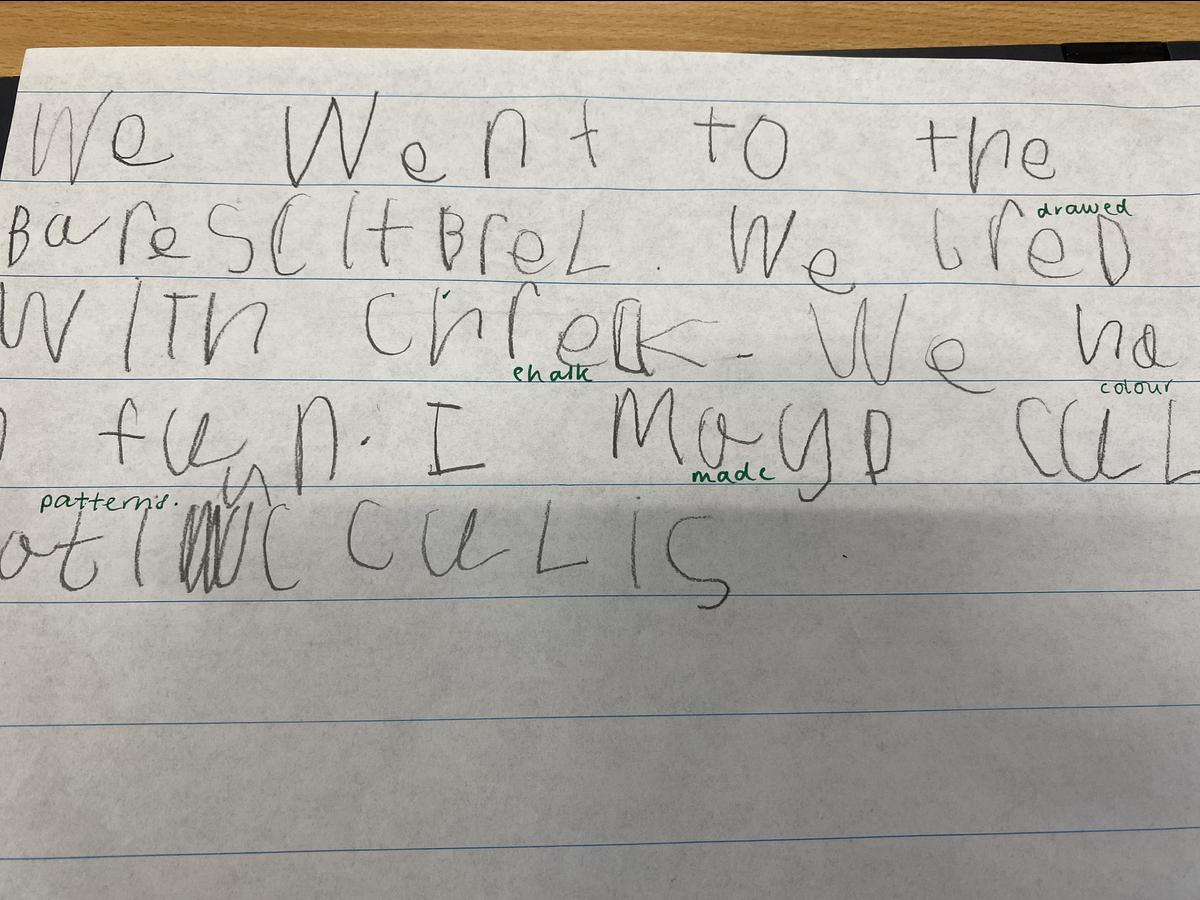 We Went to the
BareSCltBreL. We
drawed
WiTh Chreak. We ha
chalk
colour
fun. I Mayd CUL
made
patterns.
CULiS